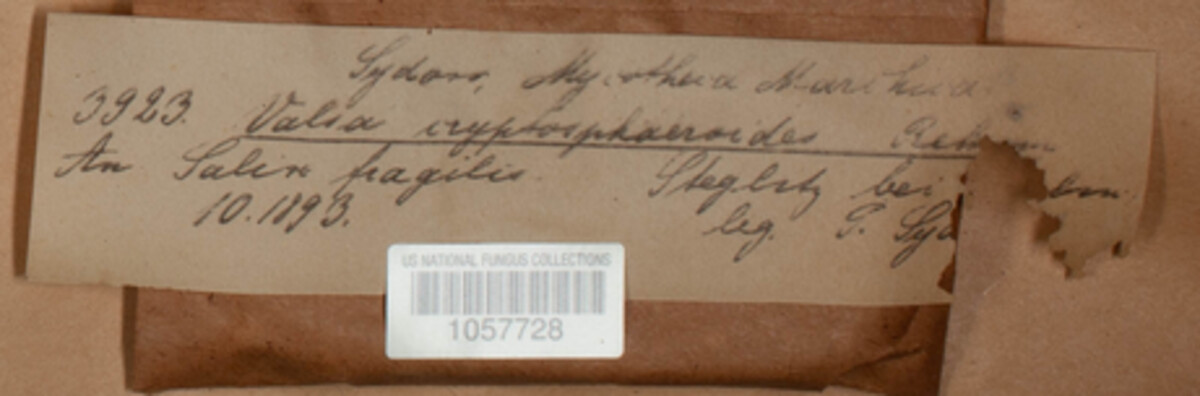 Sydow, Mycotheca Marchica
3923. Valsa cryptosphaeroides Rehm
An Salix fragilis. Steglitz bei
10.1893. leg. P. Syd
US NATIONAL FUNGUS COLLECTIONS
1057728